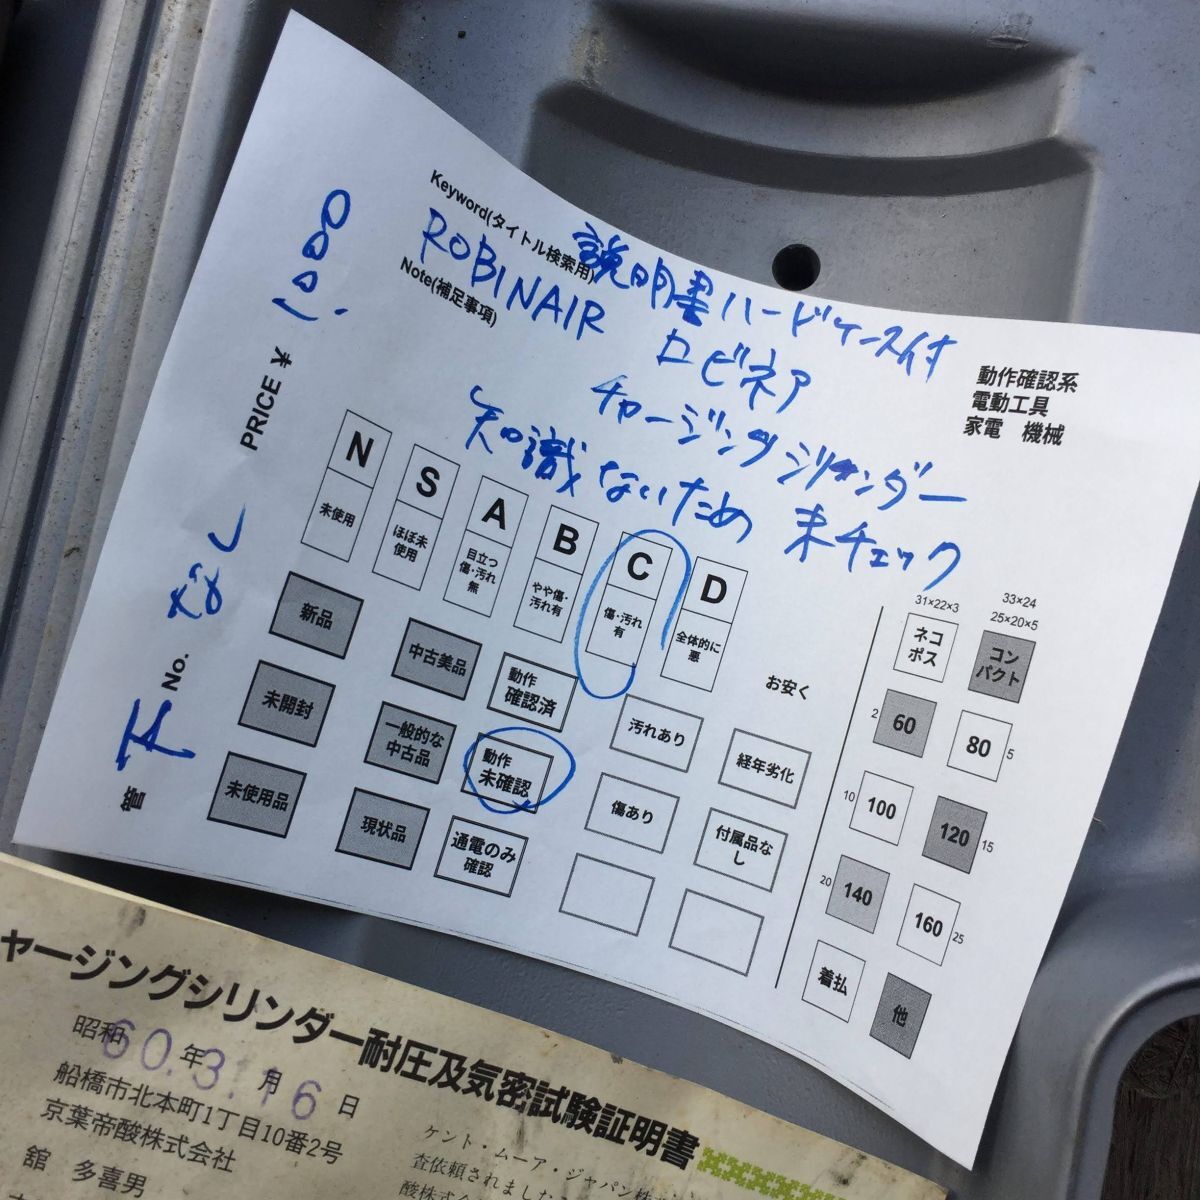 Keyword(タイトル検索用)
説明書ハードケース付
ROBINAIR ロビネア
Note(補足事項)
チャージングシリンダー
知識ないため 未チェック
動作確認系
電動工具
家電 機械
PRICE ¥
No. なし
下
N
未使用
S
ほぼ未
使用
A
目立つ
傷・汚れ
無
B
やや傷・
汚れ有
C
傷・汚れ
有
D
全体的に
悪
お安く
新品
中古美品
動作
確認済
汚れあり
経年劣化
未開封
一般的な
中古品
動作
未確認
傷あり
付属品な
し
未使用品
現状品
通電のみ
確認
31×22×3
33×24
25×20×5
ネコ
ポス
コン
パクト
2 60
80 5
10 100
120 15
20 140
160 25
着払
他
ャージングシリンダー耐圧及気密試験証明書
昭和60年3月16日
船橋市北本町1丁目10番2号
京葉帝酸株式会社
舘 多喜男
ケント・ムーア・ジャパン株
査依頼されました
酸株式会